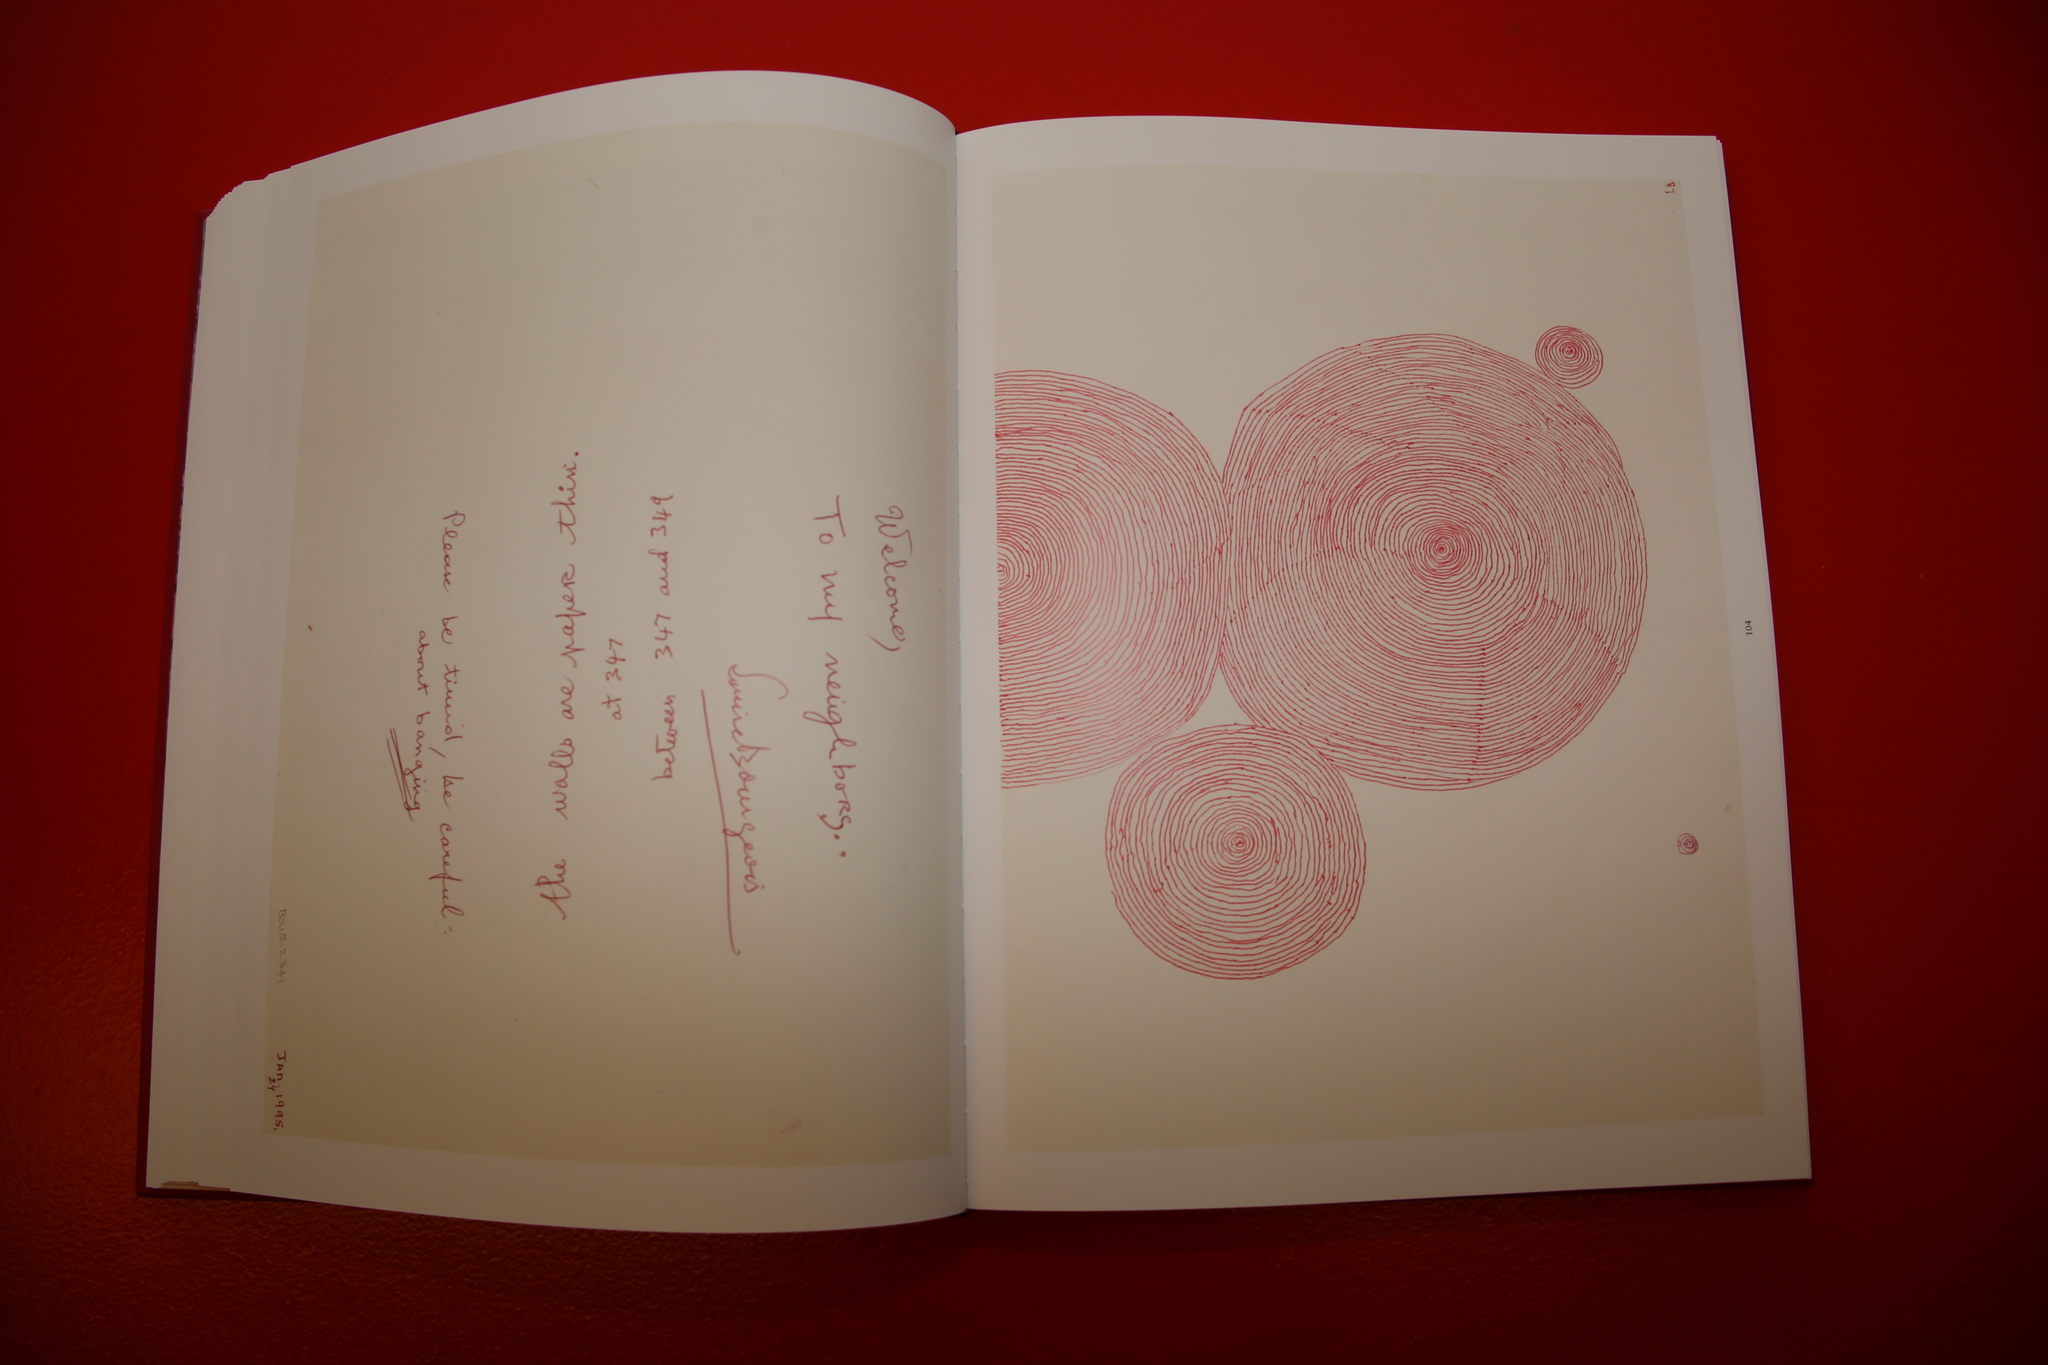 Welcome,
To my neighbors..
Louise Bourgeois
between 347 and 349
at 347
the walls are paper thin.
Please be timid, be careful:
about banging
JAN, 1995.
24
LB
104